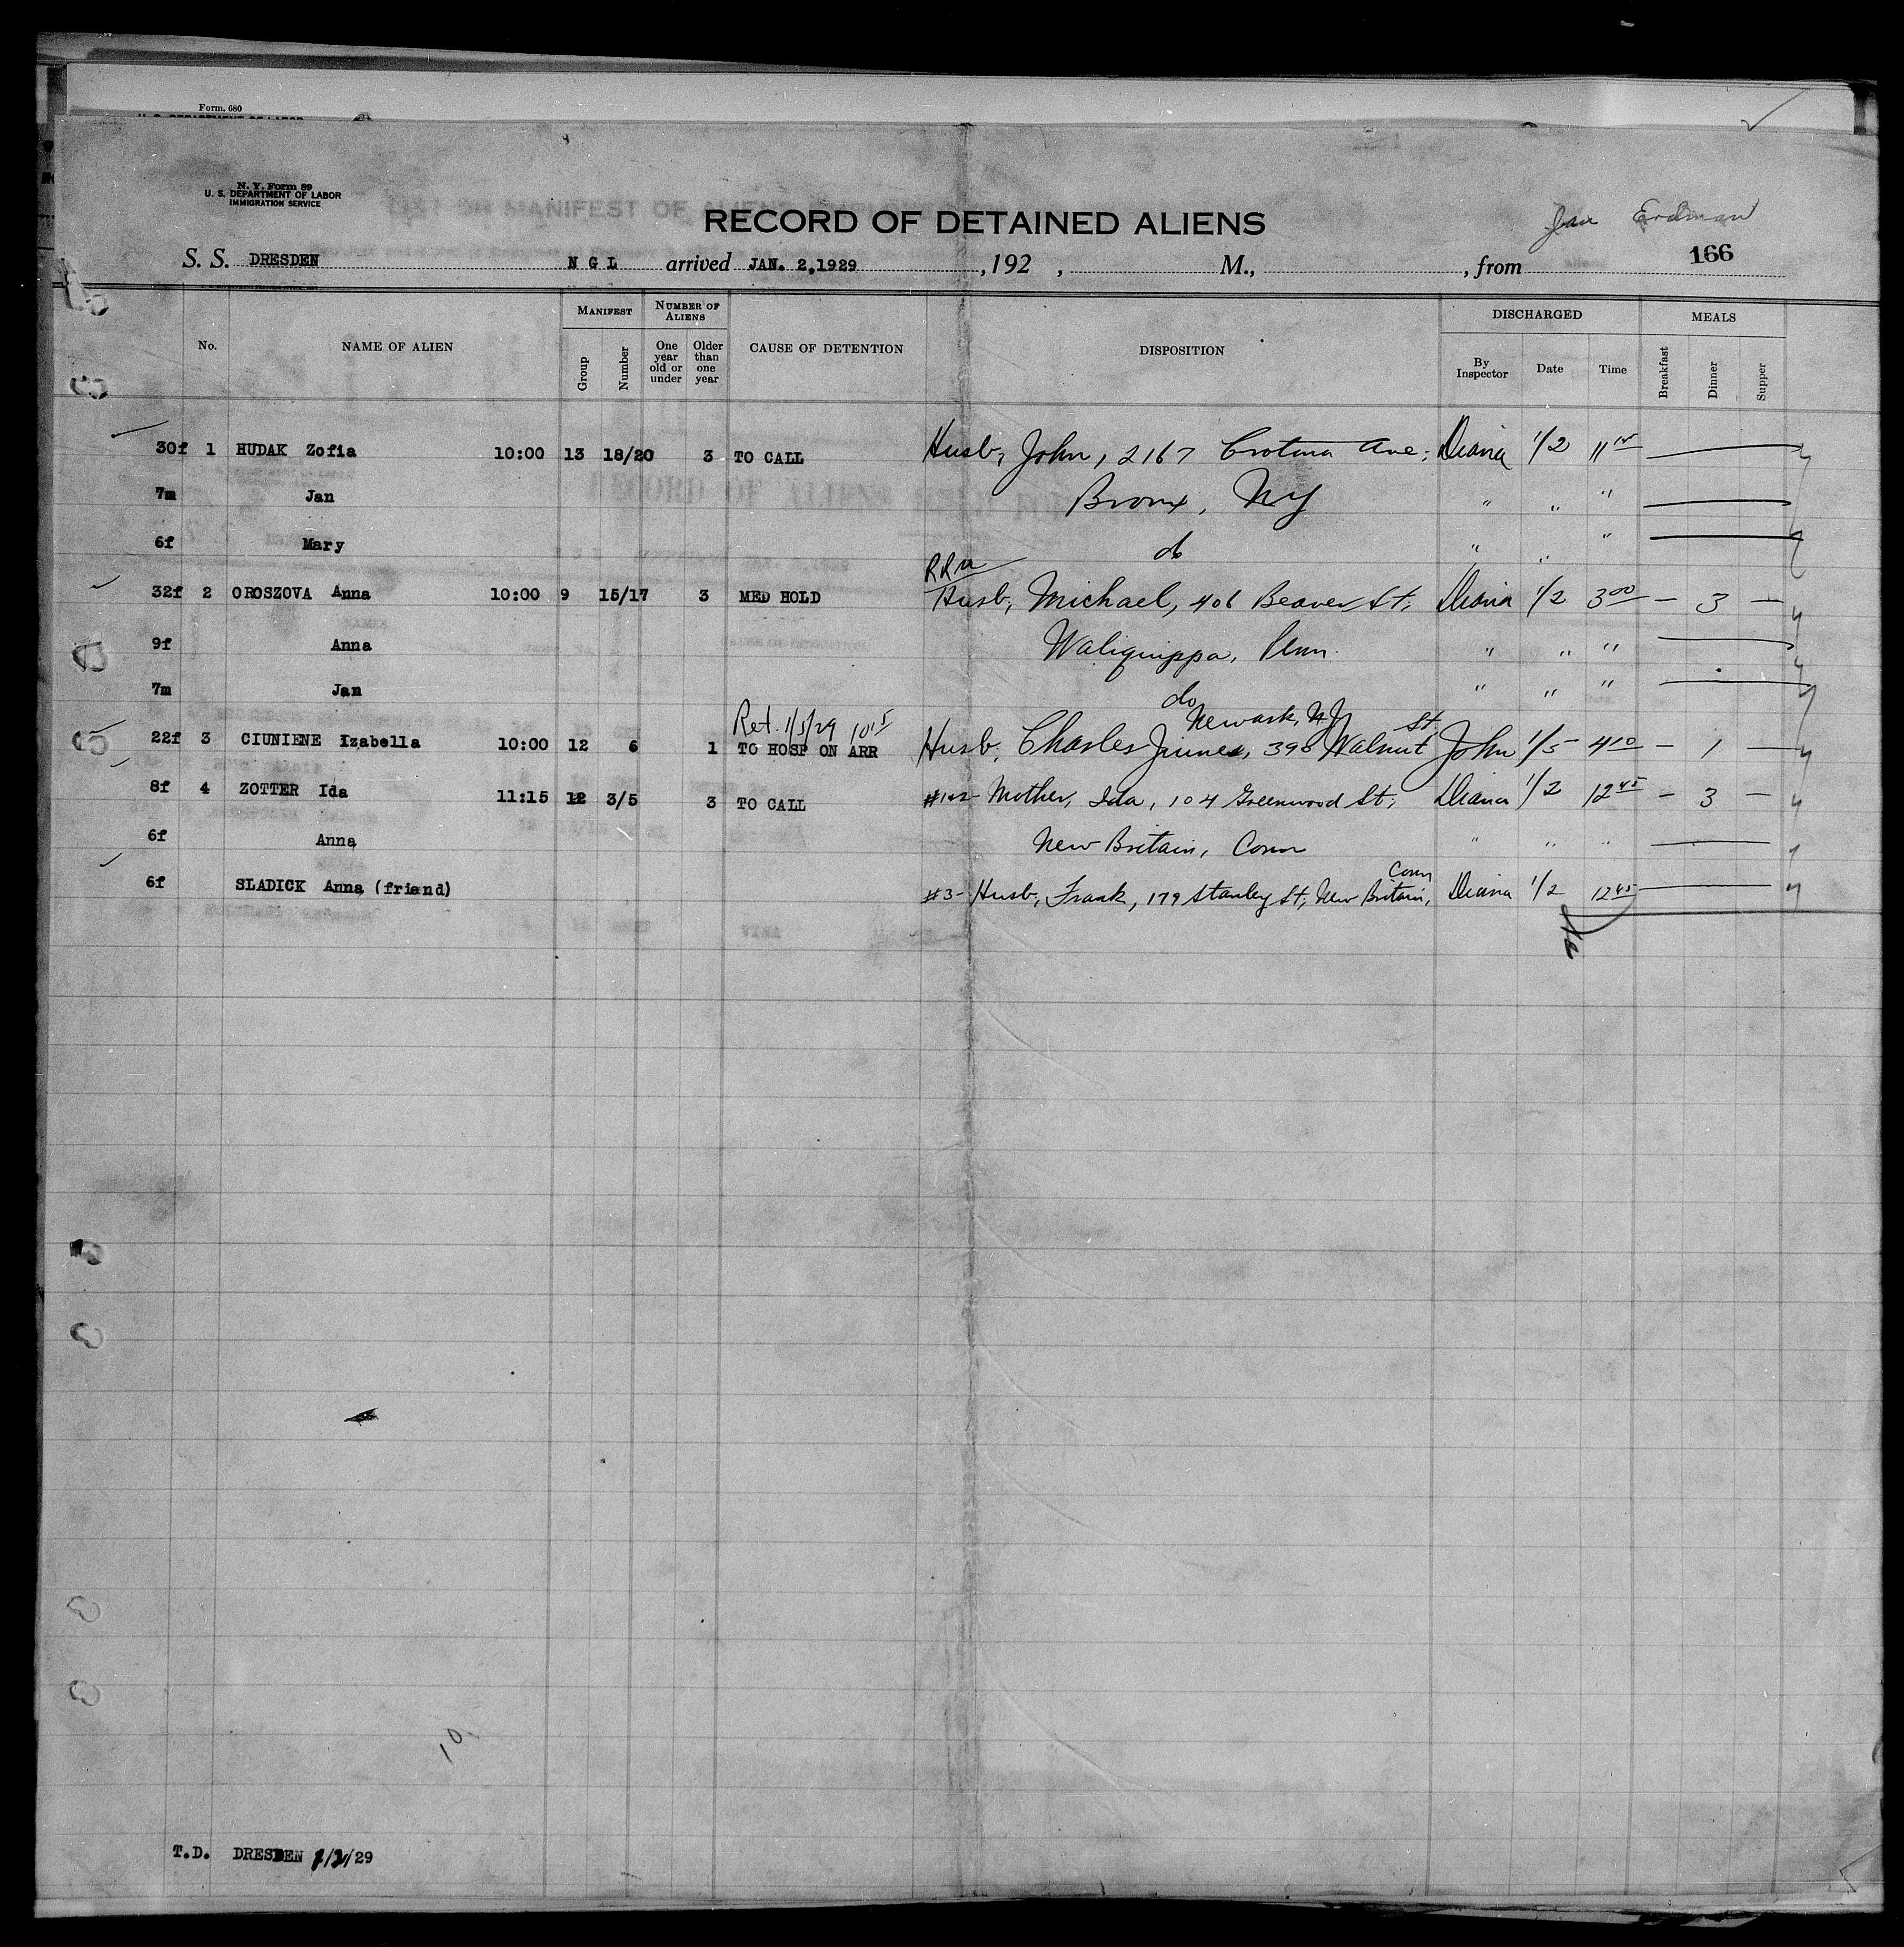 Form. 680
N. Y. Form 89
U. S. DEPARTMENT OF LABOR
IMMIGRATION SERVICE
RECORD OF DETAINED ALIENS
Erdman
S. S. DRESDEN N G L arrived JAN. 2,1929 , 192 , M., , from 166
No. NAME OF ALIEN MANIFEST Group Number NUMBER OF ALIENS One year old or under Older than one year CAUSE OF DETENTION DISPOSITION DISCHARGED By Inspector Date Time MEALS Breakfast Dinner Supper
30f 1 HUDAK Zofia 10:00 13 18/20 3 TO CALL Husb, John, 2167 Crotona Ave; Diana 1/2 11
7m Jan Bronx, NY " " "
6f Mary do " " "
RRu
32f 2 OROSZOVA Anna 10:00 9 15/17 3 MED HOLD Husb, Michael, 406 Beaver St; Diana 1/2 3 00 - 3 -
9f Anna Waliquippa, Penn. " " "
7m Jan do " " "
Ret. 1/5/29 10 15 Newark, NJ St,
22f 3 CIUNIENE Izabella 10:00 12 6 1 TO HOSP ON ARR Husb, Charles 398 Walnut John 1/5 4 10 - 1 -
8f 4 ZOTTER Ida 11:15 12 3/5 3 TO CALL #1+2- Mother, Ida, 104 Greenwood St; Diana 1/2 12 45 - 3 -
6f Anna New Britain, Conn " " "
Conn
6f SLADICK Anna (friend) #3- Husb, Frank, 179 Stanley St; New Britain, Diana 1/2 12 45
10
T.D. DRESDEN 1/2/29